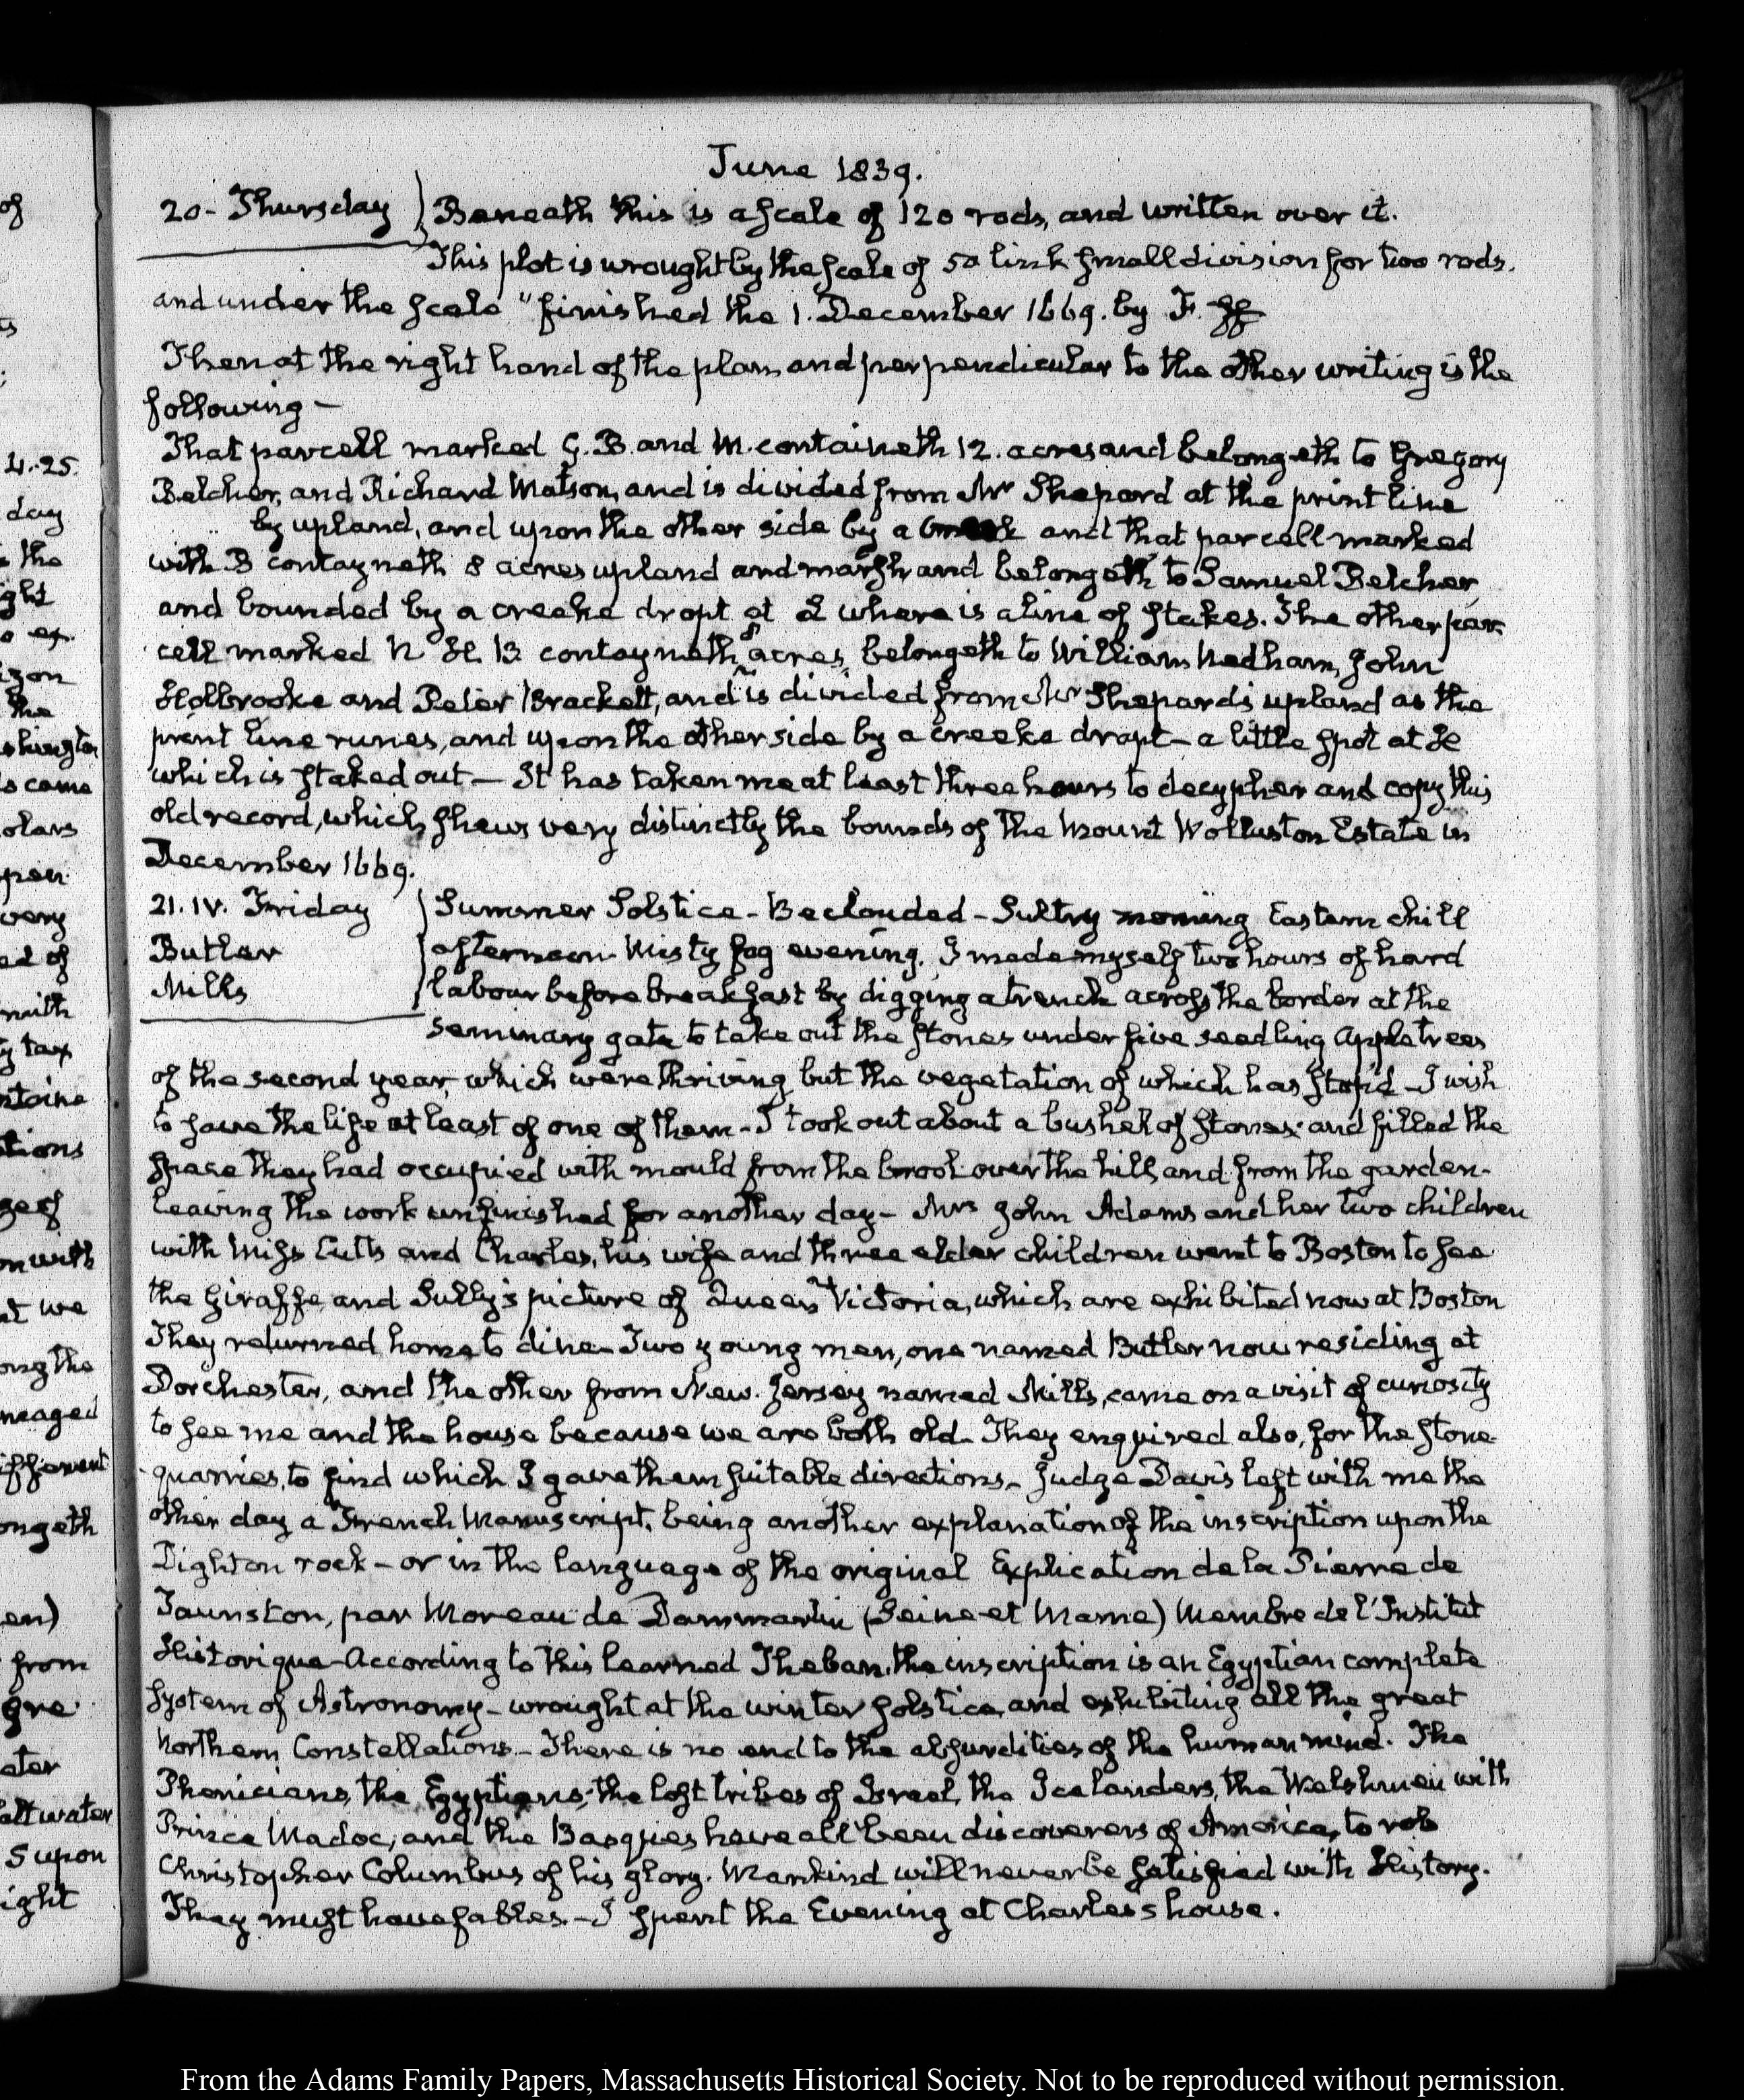 June 1839.
20 - Thursday Beneath this is a scale of 120 rods, and written over it.
This plot is wrought by the scale of 50 link small division for two rods.
and under the scale "finished the 1. December 1669. by J.
Then at the right hand of the plan and perpendicular to the other writing is the
following —
That parcell marked G. B. and M. containeth 12. acres and belongeth to Gregory
Belcher, and Richard Matson, and is divided from Mr Shepard at the print line
by upland, and upon the other side by a and that parcell marked
with B contayneth 8 acres upland and marsh and belongeth to Samuel Belcher,
and bounded by a creeke dropt at where is a line of stakes. The other par-
cell marked N H B contayneth 8 acres, belongeth to William Nedham, John
Holbrooke and Peter Brackett, and is divided from Mr Shepards upland as the
print line runes, and upon the other side by a creeke dropt — a little spot at H
which is staked out — It has taken me at least three hours to decypher and copy this
old record, which shews very distinctly the bounds of the Mount Wollaston Estate in
December 1669.
21. IV. Friday Summer Solstice - Beclouded - Sultry morning Eastern chill
Butler afternoon. Misty fog evening. I made myself two hours of hard
Mills labour before breakfast by digging a trench across the border at the
seminary gate to take out the stones under five seedling Apple trees
of the second year which were thriving but the vegetation of which has stop'd - I wish
to save the life at least of one of them - I took out about a bushel of stones and filled the
space they had occupied with mould from the brook over the hill, and from the garden -
leaving the work unfinished for another day - Mrs John Adams and her two children
with Miss Cutts and Charles, his wife and three elder children went to Boston to see
the Giraffe, and Sully's picture of Queen Victoria, which are exhibited now at Boston
They returned home to dine - Two young men, one named Butler now residing at
Dorchester, and the other from New-Jersey named Mills, came on a visit of curiosity
to see me and the house because we are both old. They enquired also, for the stone-
quarries, to find which I gave them suitable directions. - Judge Davis left with me the
other day a French Manuscript, being another explanation of the inscription upon the
Dighton rock - or in the language of the original Explication de la Pierre de
Taunston, par Moreau de Dammartin (Seine-et Marne) Membre de l'Institut
Historique - According to this learned Theban, the inscription is an Egyptian complete
system of Astronomy - wrought at the winter solstice, and exhibiting all the great
Northern Constellations - There is no end to the absurdities of the human mind. The
Phenicians, the Egyptians, the lost tribes of Israel, the Icelanders, the Welshmen with
Prince Madoc, and the Basques have all been discoverers of America, to rob
Christopher Columbus of his glory. Mankind will never be satisfied with History.
They must have fables. - I spent the Evening at Charles's house.
From the Adams Family Papers, Massachusetts Historical Society. Not to be reproduced without permission.